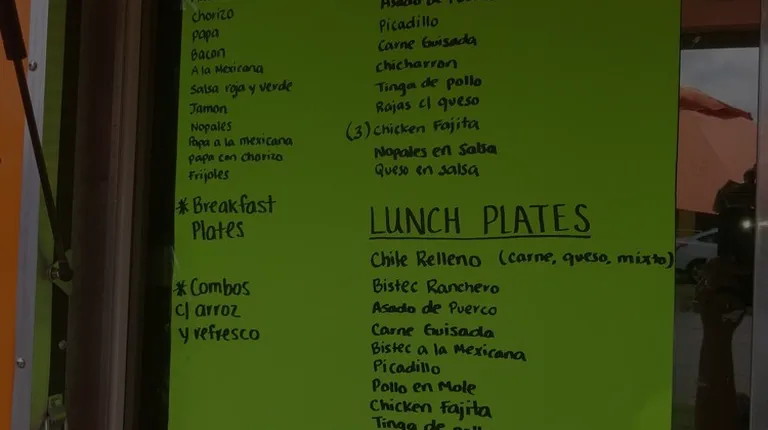 Chorizo
Papa
Bacon
A la Mexicana
Salsa roja y verde
Jamon
Nopales
Papa a la mexicana
papa con chorizo
Frijoles
*Breakfast
Plates
*Combos
c/ arroz
y refresco
Asado de
Picadillo
Carne Guisada
Chicharron
Tinga de pollo
Rajas c/ queso
(3) Chicken Fajita
Nopales en Salsa
Queso en salsa
LUNCH PLATES
Chile Relleno (carne, queso, mixto)
Bistec Ranchero
Asado de Puerco
Carne Guisada
Bistec a la Mexicana
Picadillo
Pollo en Mole
Chicken Fajita
Tinga de